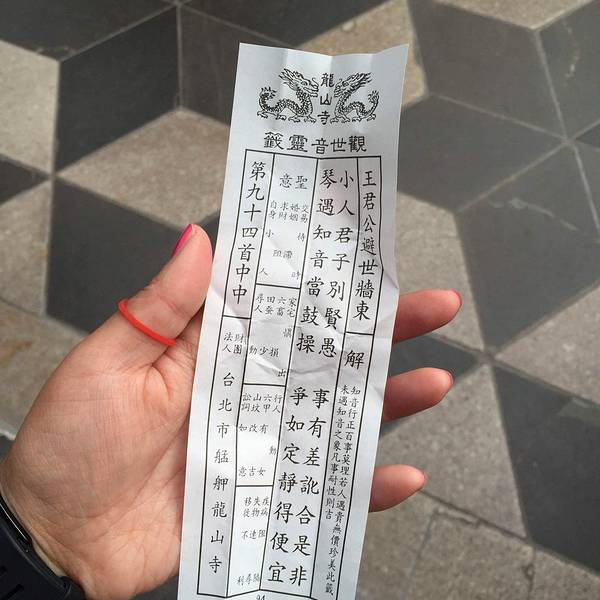 龍山寺
觀世音靈籤
王君公避世牆東
解
知音行正百事莫理若人遇青無價珍美此籤
未遇知音之象凡事耐性則吉
小人君子別賢愚 事有差訛合是非
琴遇知音當鼓操 爭如定靜得便宜
聖意
交易 待時
婚姻 阻滯
求財
自身 小人
家宅 慎出
六畜 損
田蠶 少
尋人 動
行人 動
六甲 有女
山墳 改吉
訟詞 如意
疾病
失物 遠尋
移徙 不利
第九十四首中中
財團法人 台北市艋舺龍山寺
94